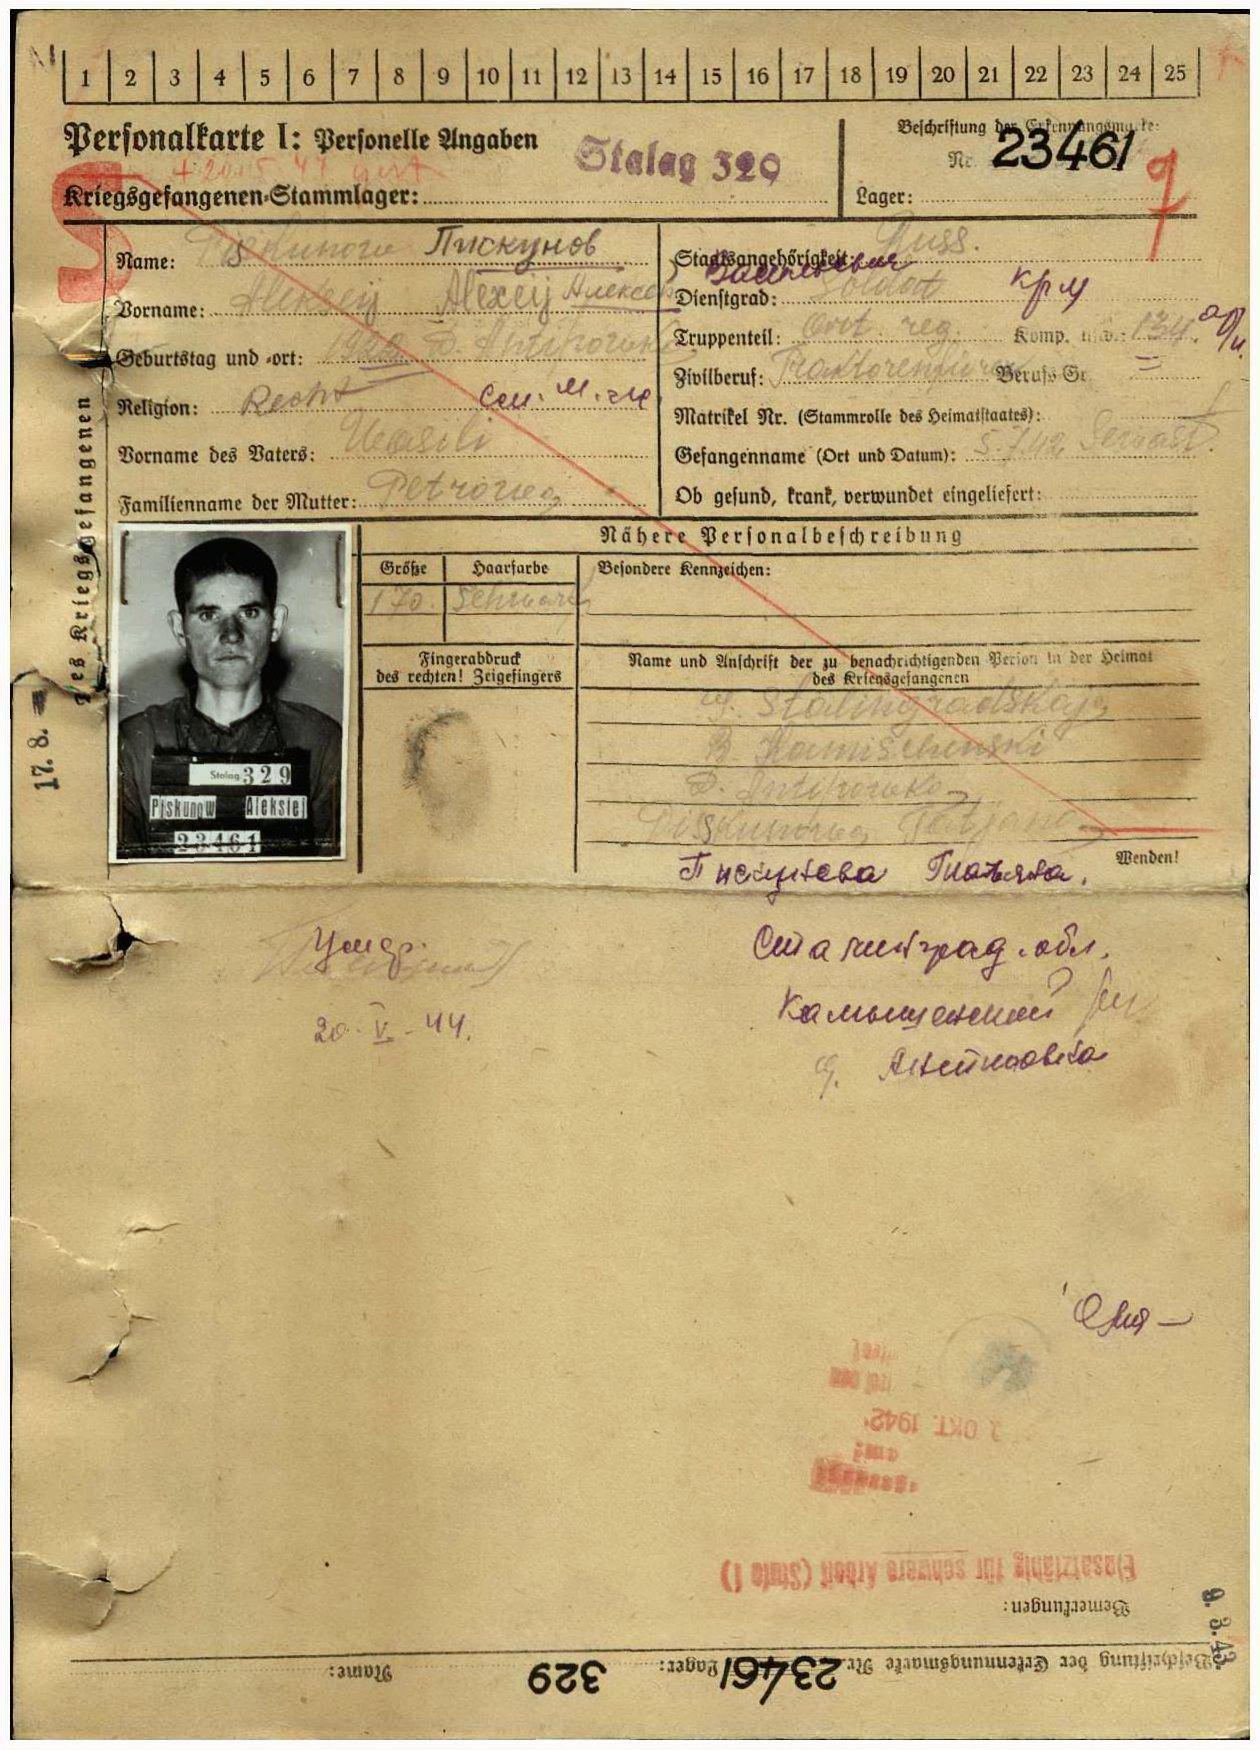 1 2 3 4 5 6 7 8 9 10 11 12 13 14 15 16 17 18 19 20 21 22 23 24 25
Personalkarte I: Personelle Angaben
Stalag 329
Beschriftung der Erkennungsmarke:
Nr. 23461
Kriegsgefangenen-Stammlager:
Lager:
S
Name: Piskunow Пискунов
Staatsangehörigkeit: Russ.
Васильевич
Vorname: Aleksej Alexej Алексей
Dienstgrad: Soldat
кр-ц
Geburtstag und -ort: D. Antipowka
Truppenteil: Art. reg. Komp. usw.: 134.
Zivilberuf: Berufs-Gr.
Religion:
Matrikel Nr. (Stammrolle des Heimatstaates):
Vorname des Vaters: Wasili
Gefangenname (Ort und Datum): 5.7.42
Familienname der Mutter: Petrowa
Ob gesund, krank, verwundet eingeliefert:
des Kriegsgefangenen
17. 8.
Nähere Personalbeschreibung
Größe Haarfarbe Besondere Kennzeichen:
170. Schwarz
Fingerabdruck
des rechten! Zeigefingers
Name und Anschrift der zu benachrichtigenden Person in der Heimat
des Kriegsgefangenen
Stalingradskaja
R. Kamischenski
D. Antipowka
Piskunowa Tatjana
Wenden!
Stalag 329
Piskunow Aleksiej
23461
Пискунова Татьяна.
Умер.
20-V-44.
Сталинград. обл.
Камышенский
Антиповка
2. OKT. 1942
Einsatzfähig für schwere Arbeit (Stufe I)
Bemerkungen:
9. 3. 43
Beschriftung der Erkennungsmarke Nr. 23461 Lager: 329 Name: